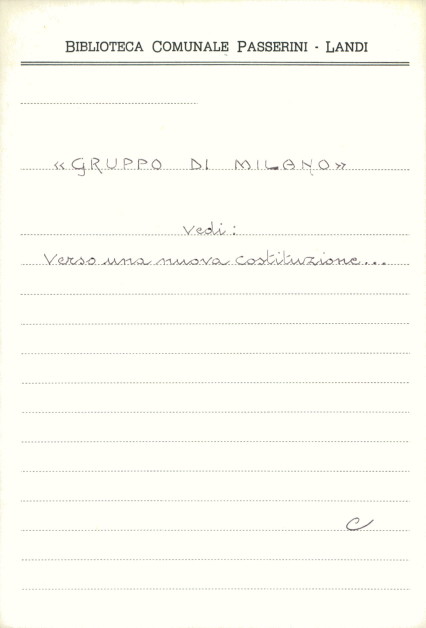 BIBLIOTECA COMUNALE PASSERINI - LANDI
«GRUPPO DI MILANO»
Vedi:
Verso una nuova costituzione...
C